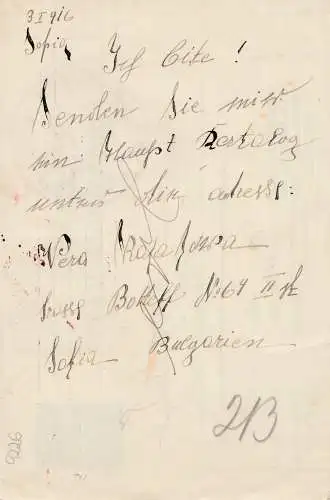 3 I 916
Sofia
Ich bite!
Senden Sie mir
ein Haupt Kartalog
unter die adresse:
Vera
Botteff No 64 II
Sofia Bulgarien
213
9226